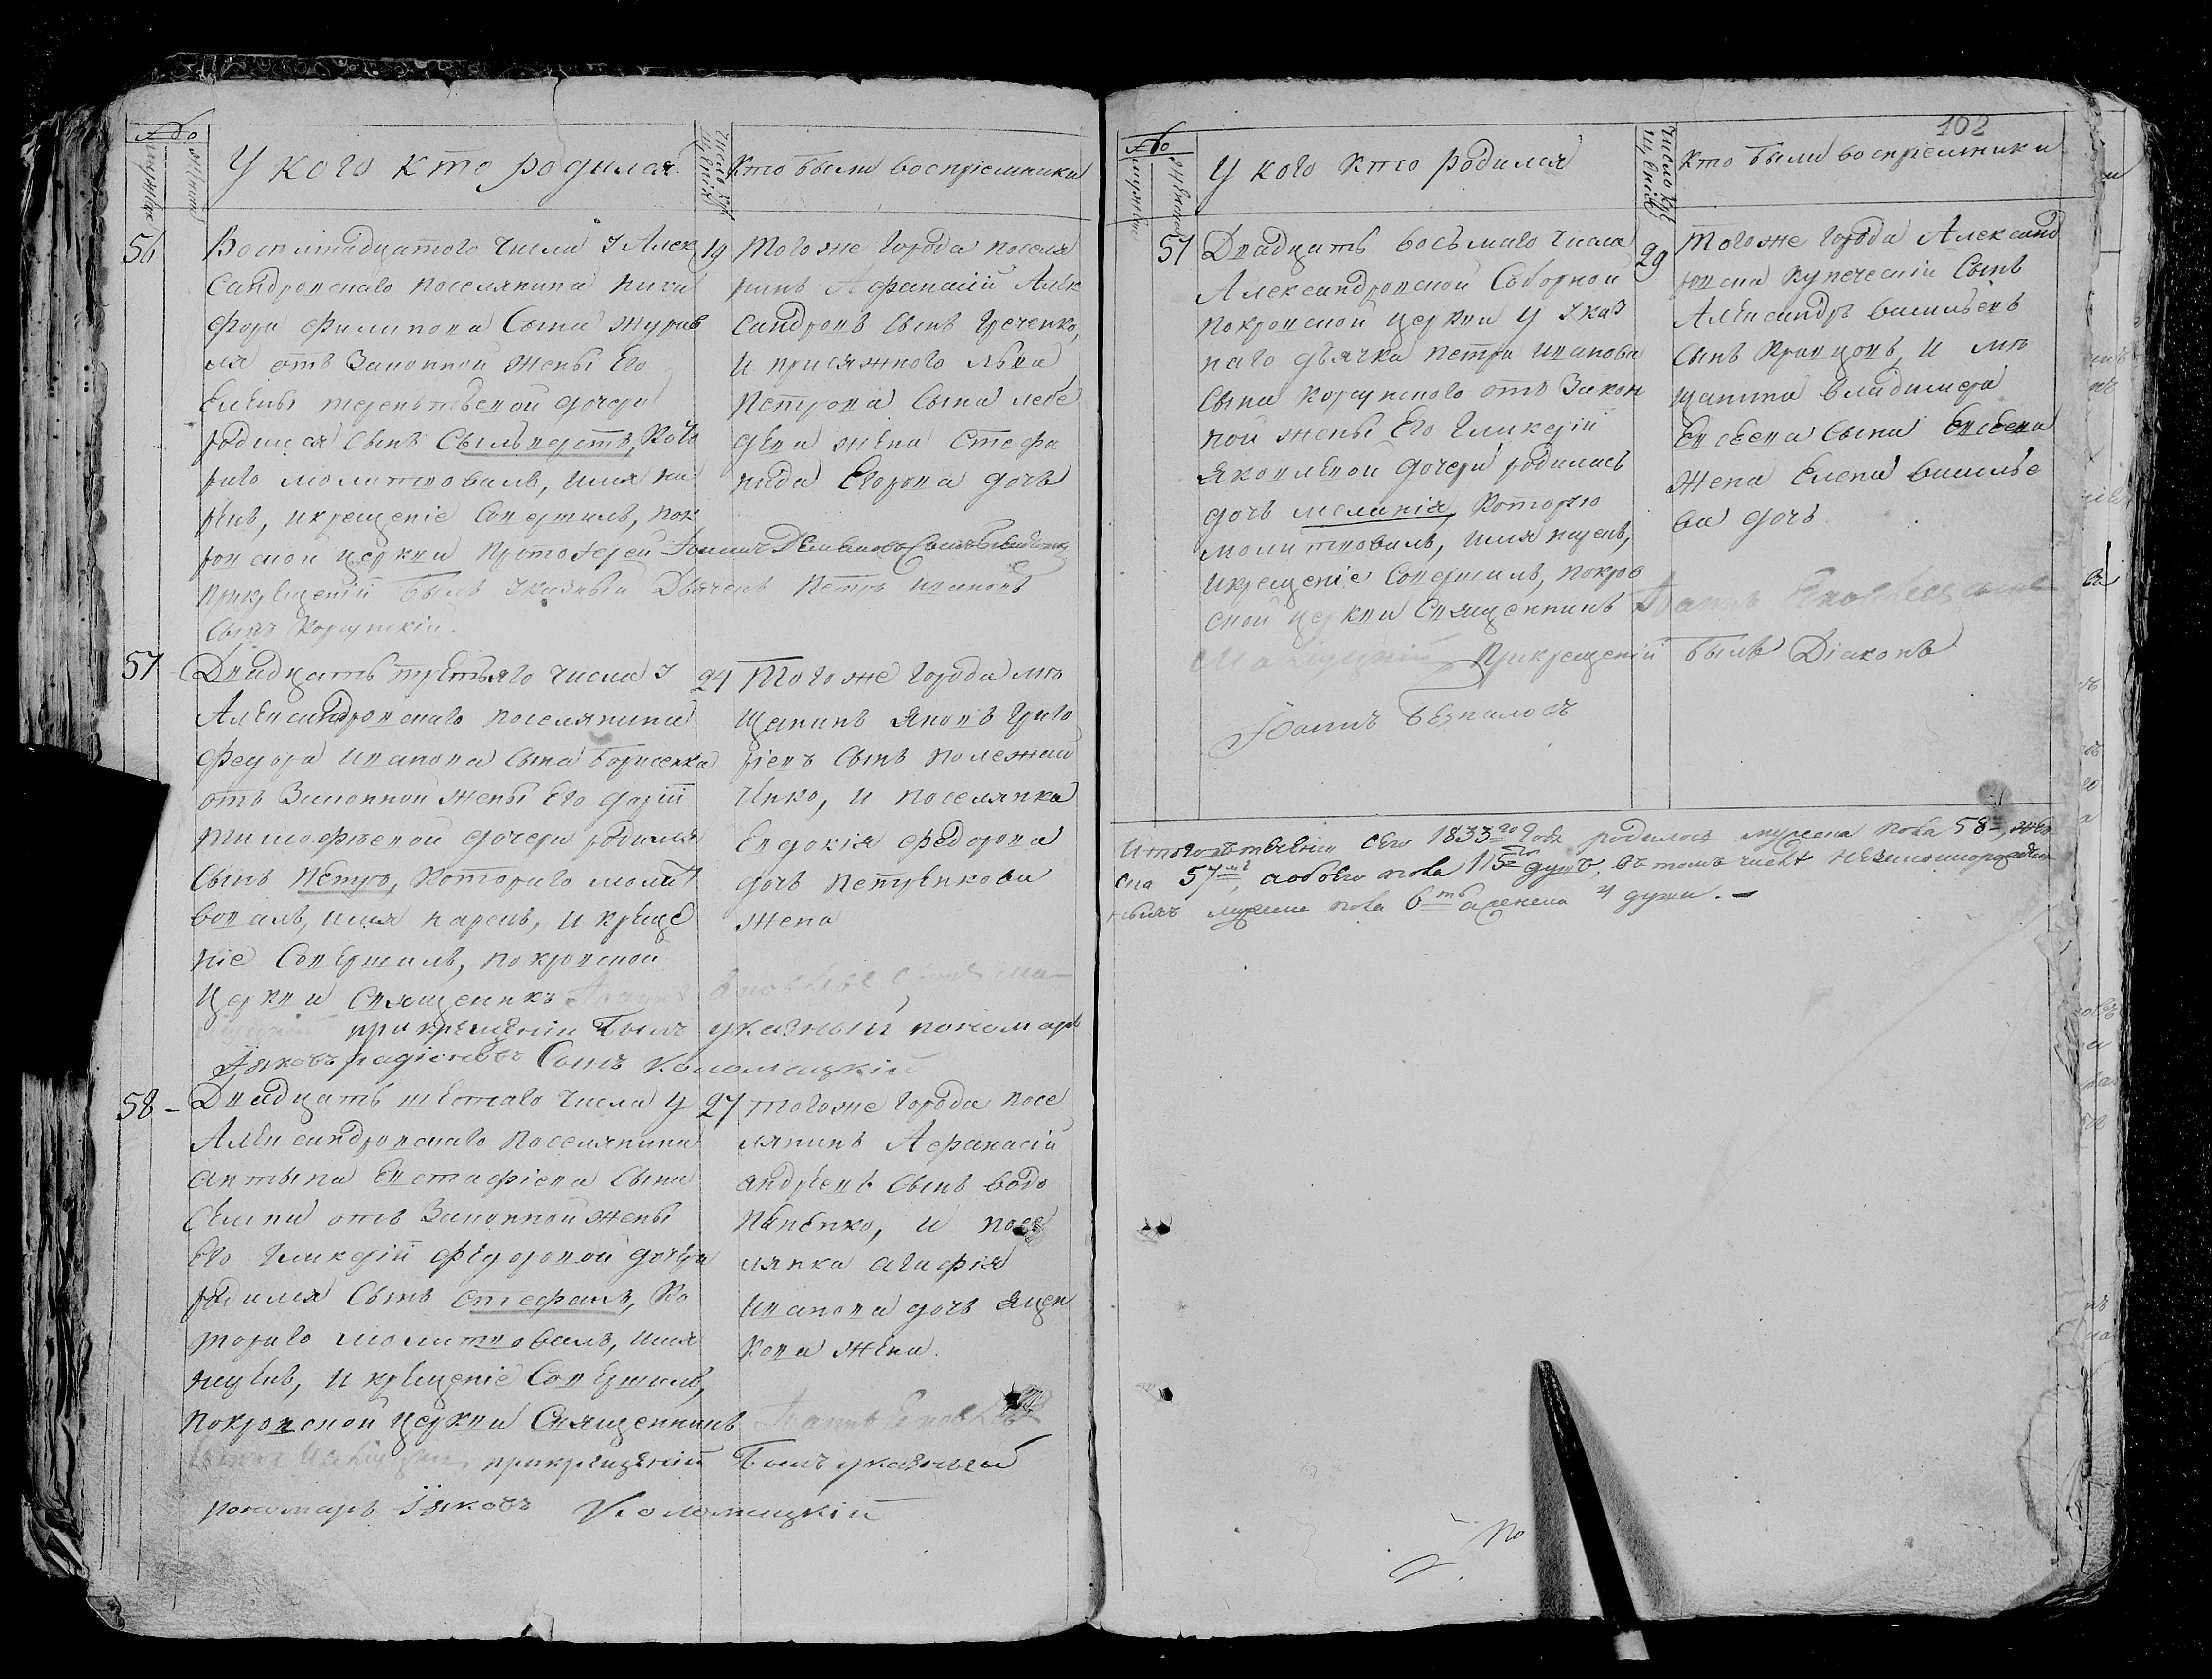 Чо
мужеск
женск
У кого кто родился
Число кре
щенія
Кто были воспріемники
56
Восемнадцатого числа у Алек
сандровскаго поселянина Ники
фора Филипова сына Журав
ля отъ законной жены его
Елены терентьевой дочери
родился сынъ Сыльвестръ, кото
раго молитвовалъ, имя на
рекъ, и крещеніе совершилъ, Пок
ровской церкви протоіерей Іоаннъ Демьяновъ Сынъ
прикрещеніи былъ указный Дьячекъ Петръ Ивановъ
сынъ Корсунскій.
19
Того же города поселя
нинъ Афанасій Алек
сандровъ сынъ Греченко,
и присяжного Льва
Петрова сына Лебе
дева жена Стефа
нида Егорова дочь
57 -
Двадцать третьяго числа у
Александровскаго поселянина
Федора Иванова сына Борисенка
отъ законной жены его Дарій
Тимофѣевой дочери родился
сынъ Петръ, котораго молит
вовалъ, имя нарекъ, и креще
ніе совершилъ, Покровской
церкви Священникъ Іоаннъ Яковлевъ Сынъ Ма
прикрещеніи былъ указный пономарь
Іяковъ радіоновъ Сынъ Коломацкій
24
Того же города мѣ
щанинъ Яковъ Григо
ріевъ сынъ Полежай
ченко, и поселянка
Евдокія Федорова
дочь Петренкова
жена
58 -
Двадцать шестаго числа у
Александровскаго поселянина
Антына Евстафіева сына
Семина отъ законной жены
его Гликерій Федоровой дочери
родился сынъ Стефанъ, ко
тораго молитвовалъ, имя
нарекъ, и крещеніе совершилъ,
Покровской церкви Священникъ Іоаннъ Яковлевъ
прикрещеніи былъ указный
пономарь Іяковъ Коломацкій
27
того же города посе
лянинъ Афанасій
Андреевъ сынъ Водо
, и посе
лянка Агафія
Иванова дочь Яцен
кова жена.
102
Чо
мужеск
женска
У кого кто родился
Число кре
щенія
Кто были воспріемники
57
Двадцать восьмаго числа
Александровской Соборной
Покровской церкви у указ
наго дьячка Петра Иванова
сына Корсунского отъ закон
ной жены его Гликерій
Яковлевой дочери родилась
дочь Меланія, которую
молитвовалъ, имя нарекъ,
и крещеніе совершилъ, Покров
ской церкви Священникъ Іоаннъ Яковлевъ сынъ
прикрещеніи былъ Діаконъ
Іоаннъ Безпаловъ
29
Того же города Александ
ровска купеческій сынъ
Александръ Васильевъ
сынъ Кравцовъ, и мѣ
щанина Владимера
Евсеева сына Евсеева
жена Елена Василье
ва дочь
Итого въ теченіи сего 1833го года родилось мужеска пола 58, жен
ска 57мъ, а обоего пола 115 душъ, въ томъ числѣ незаконнорожден
ныхъ мужеска пола 6ть а женска 4 души. -
По